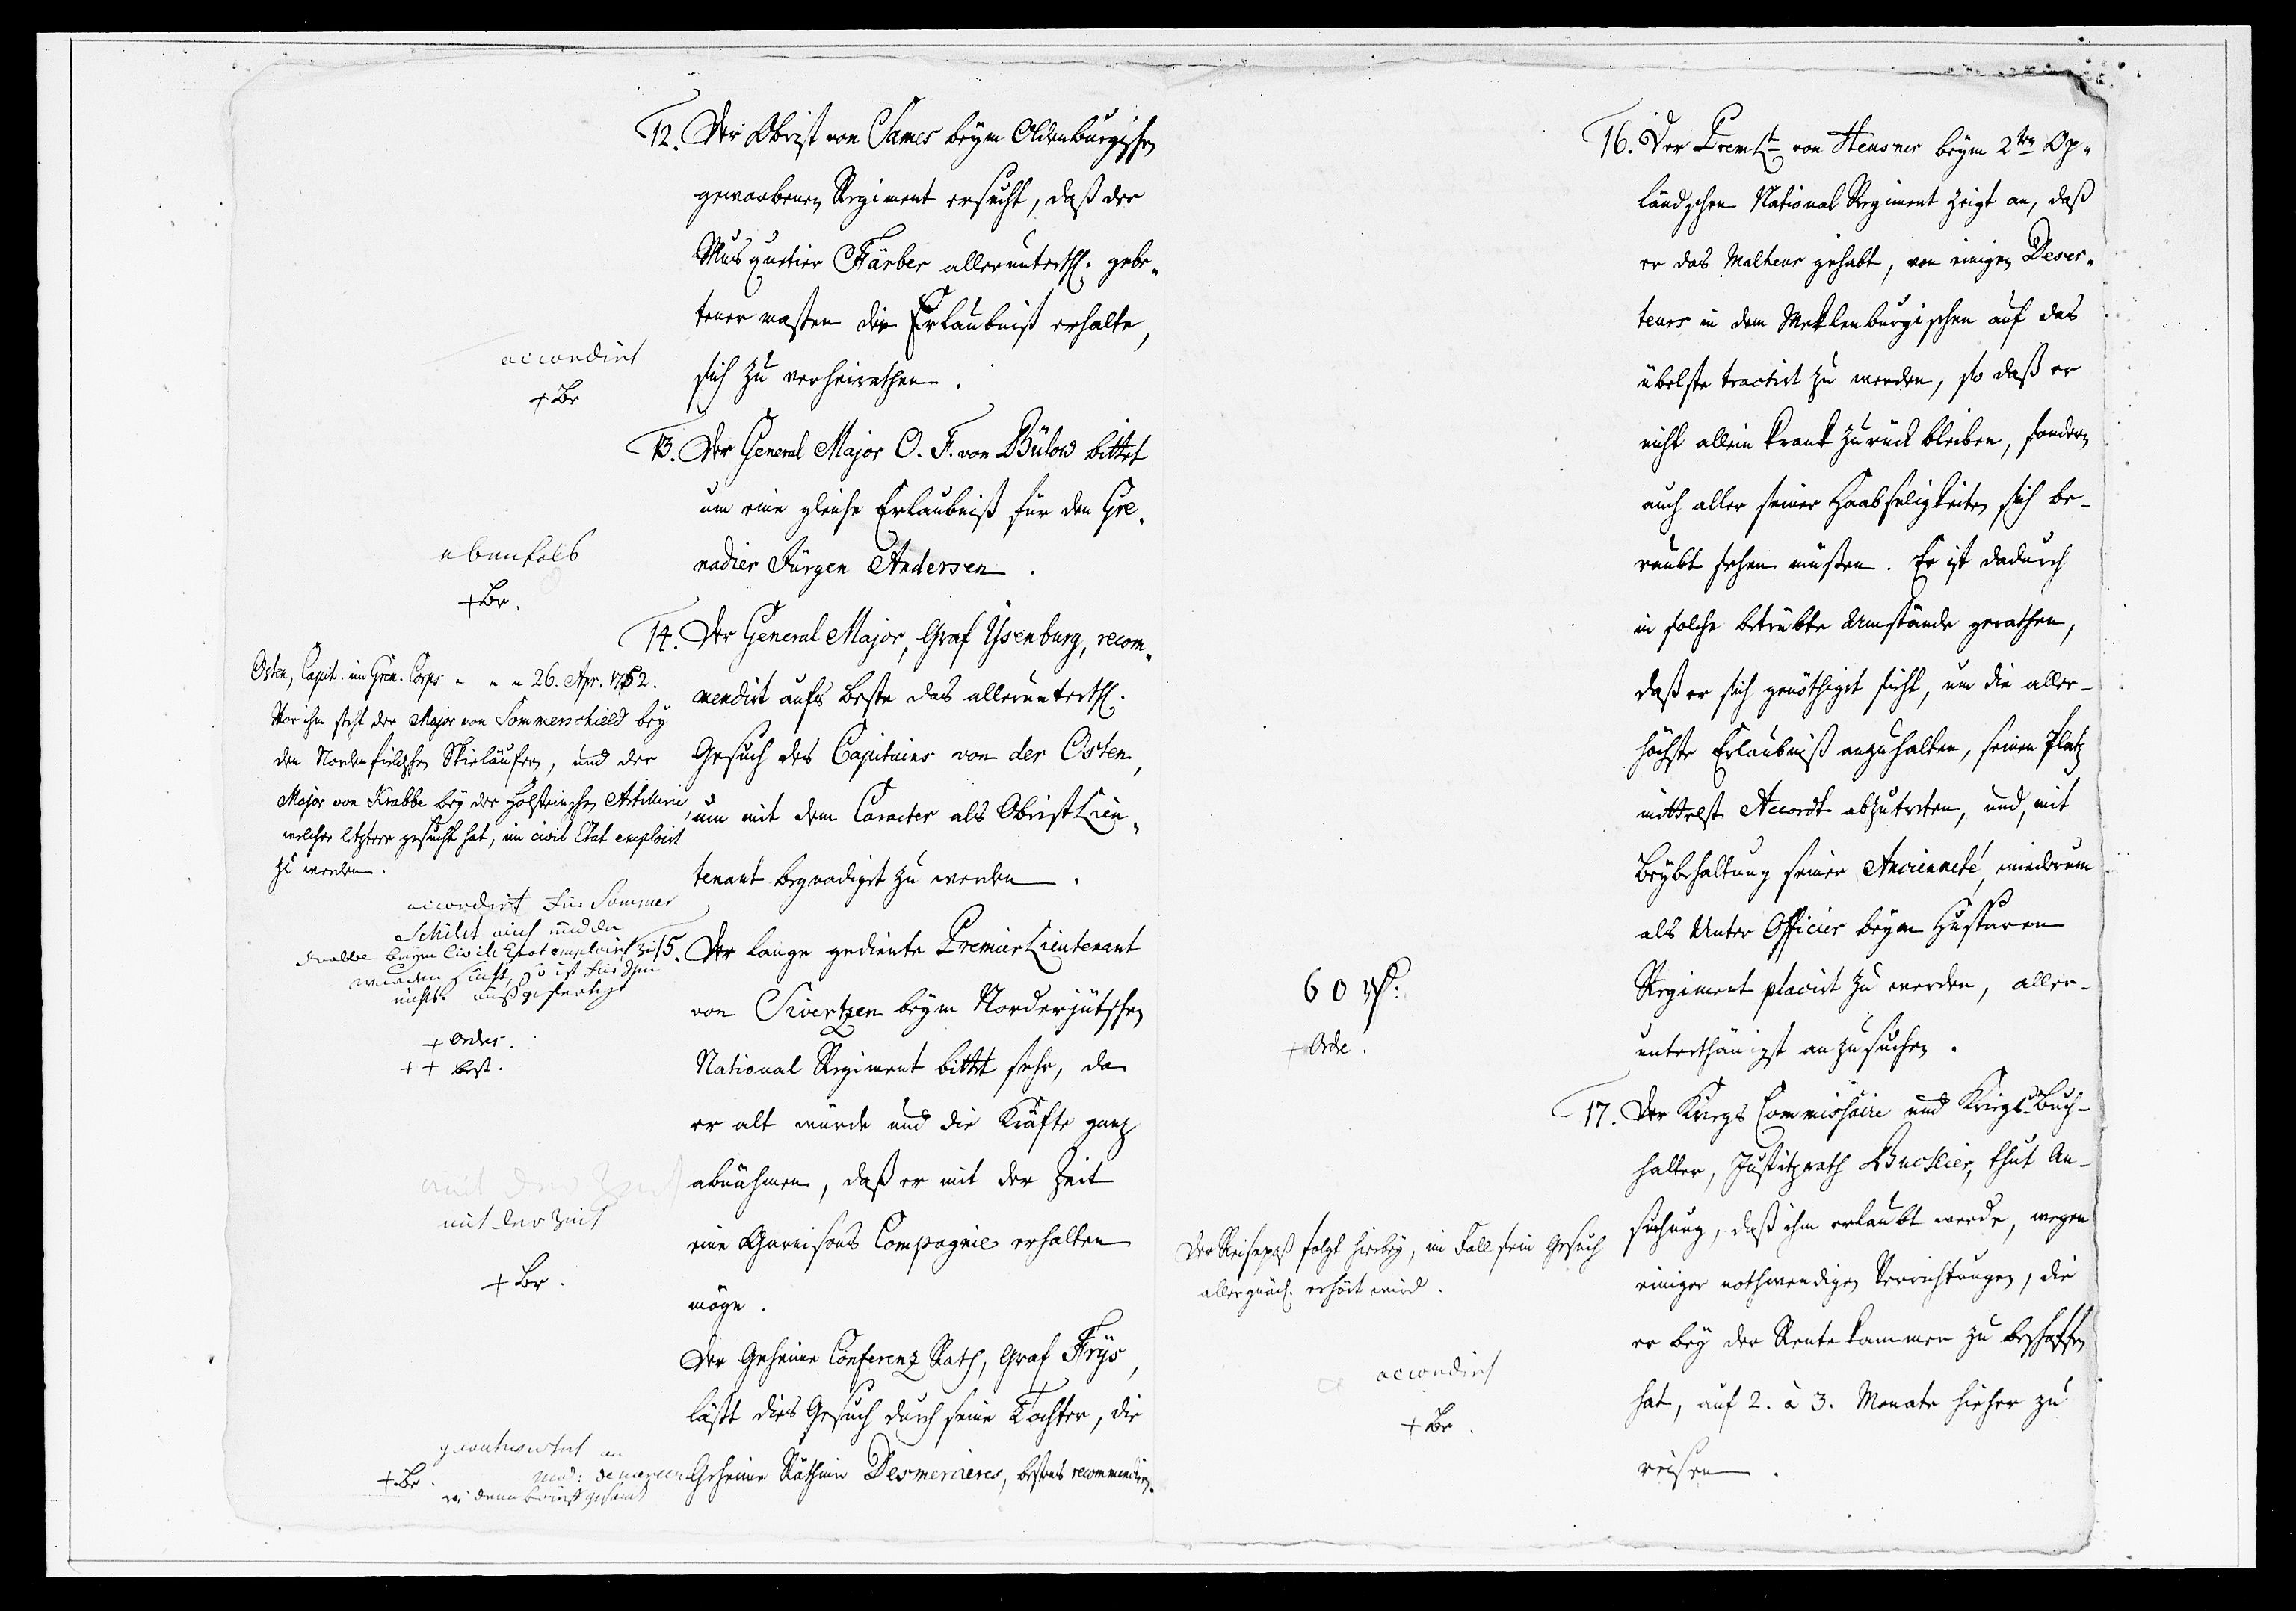 12. Der Obrist von Sames beym Oldenburgischen
geworbenen Regiment ersucht, daß der
Musquetier Färber allerunterth. gebe„
tener maßen die Erlaubniß erhalte,
sich zu verheirathen.
accordirt
+ Br
13. Der General Major C. F. von Bülow bittet
um eine gleiche Erlaubniß für den Gre„
nadier Jürgen Andersen.
ebenfals
+ Br.
14. Der General Major, Graf Ysenburg, recom„
mendirt aufs beste das allerunterth.
Gesuch des Capitains von der Osten,
um mit dem Caracter als Obrist Lieu„
tenant begnadiget zu werden.
Osten, Capit. im Gren. Corps „ „ „ 26. Apr. 1752.
Vor ihm steht der Major von Sommerschield bey
den Nordenfieldschen Skieläufern, und der
Major von Krabbe bey der Holsteinschen Artillerie,
welcher letztere gesucht hat, im civil Etat emploirt
zu werden.
accordirt für Sommer
Schildt auch und da
Krabbe beym Civile Etat emploirt zu
werden sucht, so ist für Ihm
nichts ausgefertigt
+ Order.
+ + Best.
15. Der lange gediente Premier Lieutenant
von Sivertzen beym Norderjütschen
National Regiment bittet sehr, da
er alt würde und die Kräfte ganz
abnähmen, daß er mit der Zeit
eine Garnisons Compagnie erhalten
möge.
mit der Zeit
mit der Zeit
+ Br.
Der Geheime Conferenz Rath, Graf Frÿs,
läßt dies Gesuch durch seine Tochter, die
Geheime Räthin Desmercieres, bestens recommendiren.
geantwortet an
Mad:
+ Br.
16. Der Prem Lt von Heusner beym 2ten Op„
ländschen National Regiment zeigt an, daß
er das Malheur gehabt, von einigen Deser„
teurs in dem Meklenburgischen auf das
übelste tractirt zu werden, so daß er
nicht allein krank zurück bleiben, sondern
auch aller seiner Haabseligkeiten sich be-
raubt sehen müßen. Er ist dadurch
in solche betrübte Umstände gerathen,
daß er sich genöthiget sieht, um die aller-
höchste Erlaubniß anzuhalten, seinen Platz
mittelst Accordt abzutreten, und, mit
Beybehaltung seiner Ancienneté, wiederum
als Unter Officier beym Husaren
Regiment placirt zu werden, aller-
unterthänigst anzusuchen.
60 rf:
+ Orde.
17. Der Kriegs Commissaire und Kriegs-Buch-
halter, Justitzrath Buchlier, thut An-
suchung, daß ihm erlaubt werde, wegen
einiger nothwendigen Verrichtungen, die
er bey der Rentekammer zu beschaffen
hat, auf 2. à 3. Monate hieher zu
reisen.
Der Reisepaß folgt hierbey, im Fall sein Gesuch
allergnäd. erhört wird.
accordirt
+ Br.